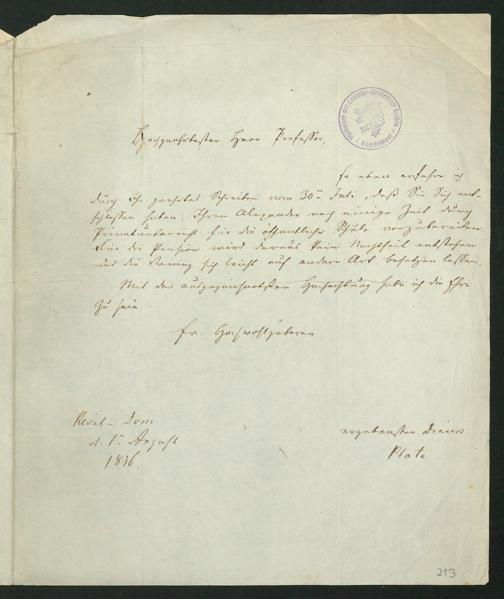 Hochgeehrtester Herr Professor,
So eben erfahre ich
durch Ihr geehrtes Schreiben vom 30n Juli, daß Sie Sich ent-
schlossen haben, Ihren Alexander noch einige Zeit durch
Privatunterricht für die öffentliche Schule vorzubereiten.
Für die Pension wird daraus kein Nachtheil entstehen
und die sich leicht auf andere Art besetzen lassen.
Mit der ausgezeichnetsten Hochachtung habe ich die Ehre
zu sein
Ew. Hochwohlgeboren
d. 1n August
1836.
ergebenster Diener
Plate
213